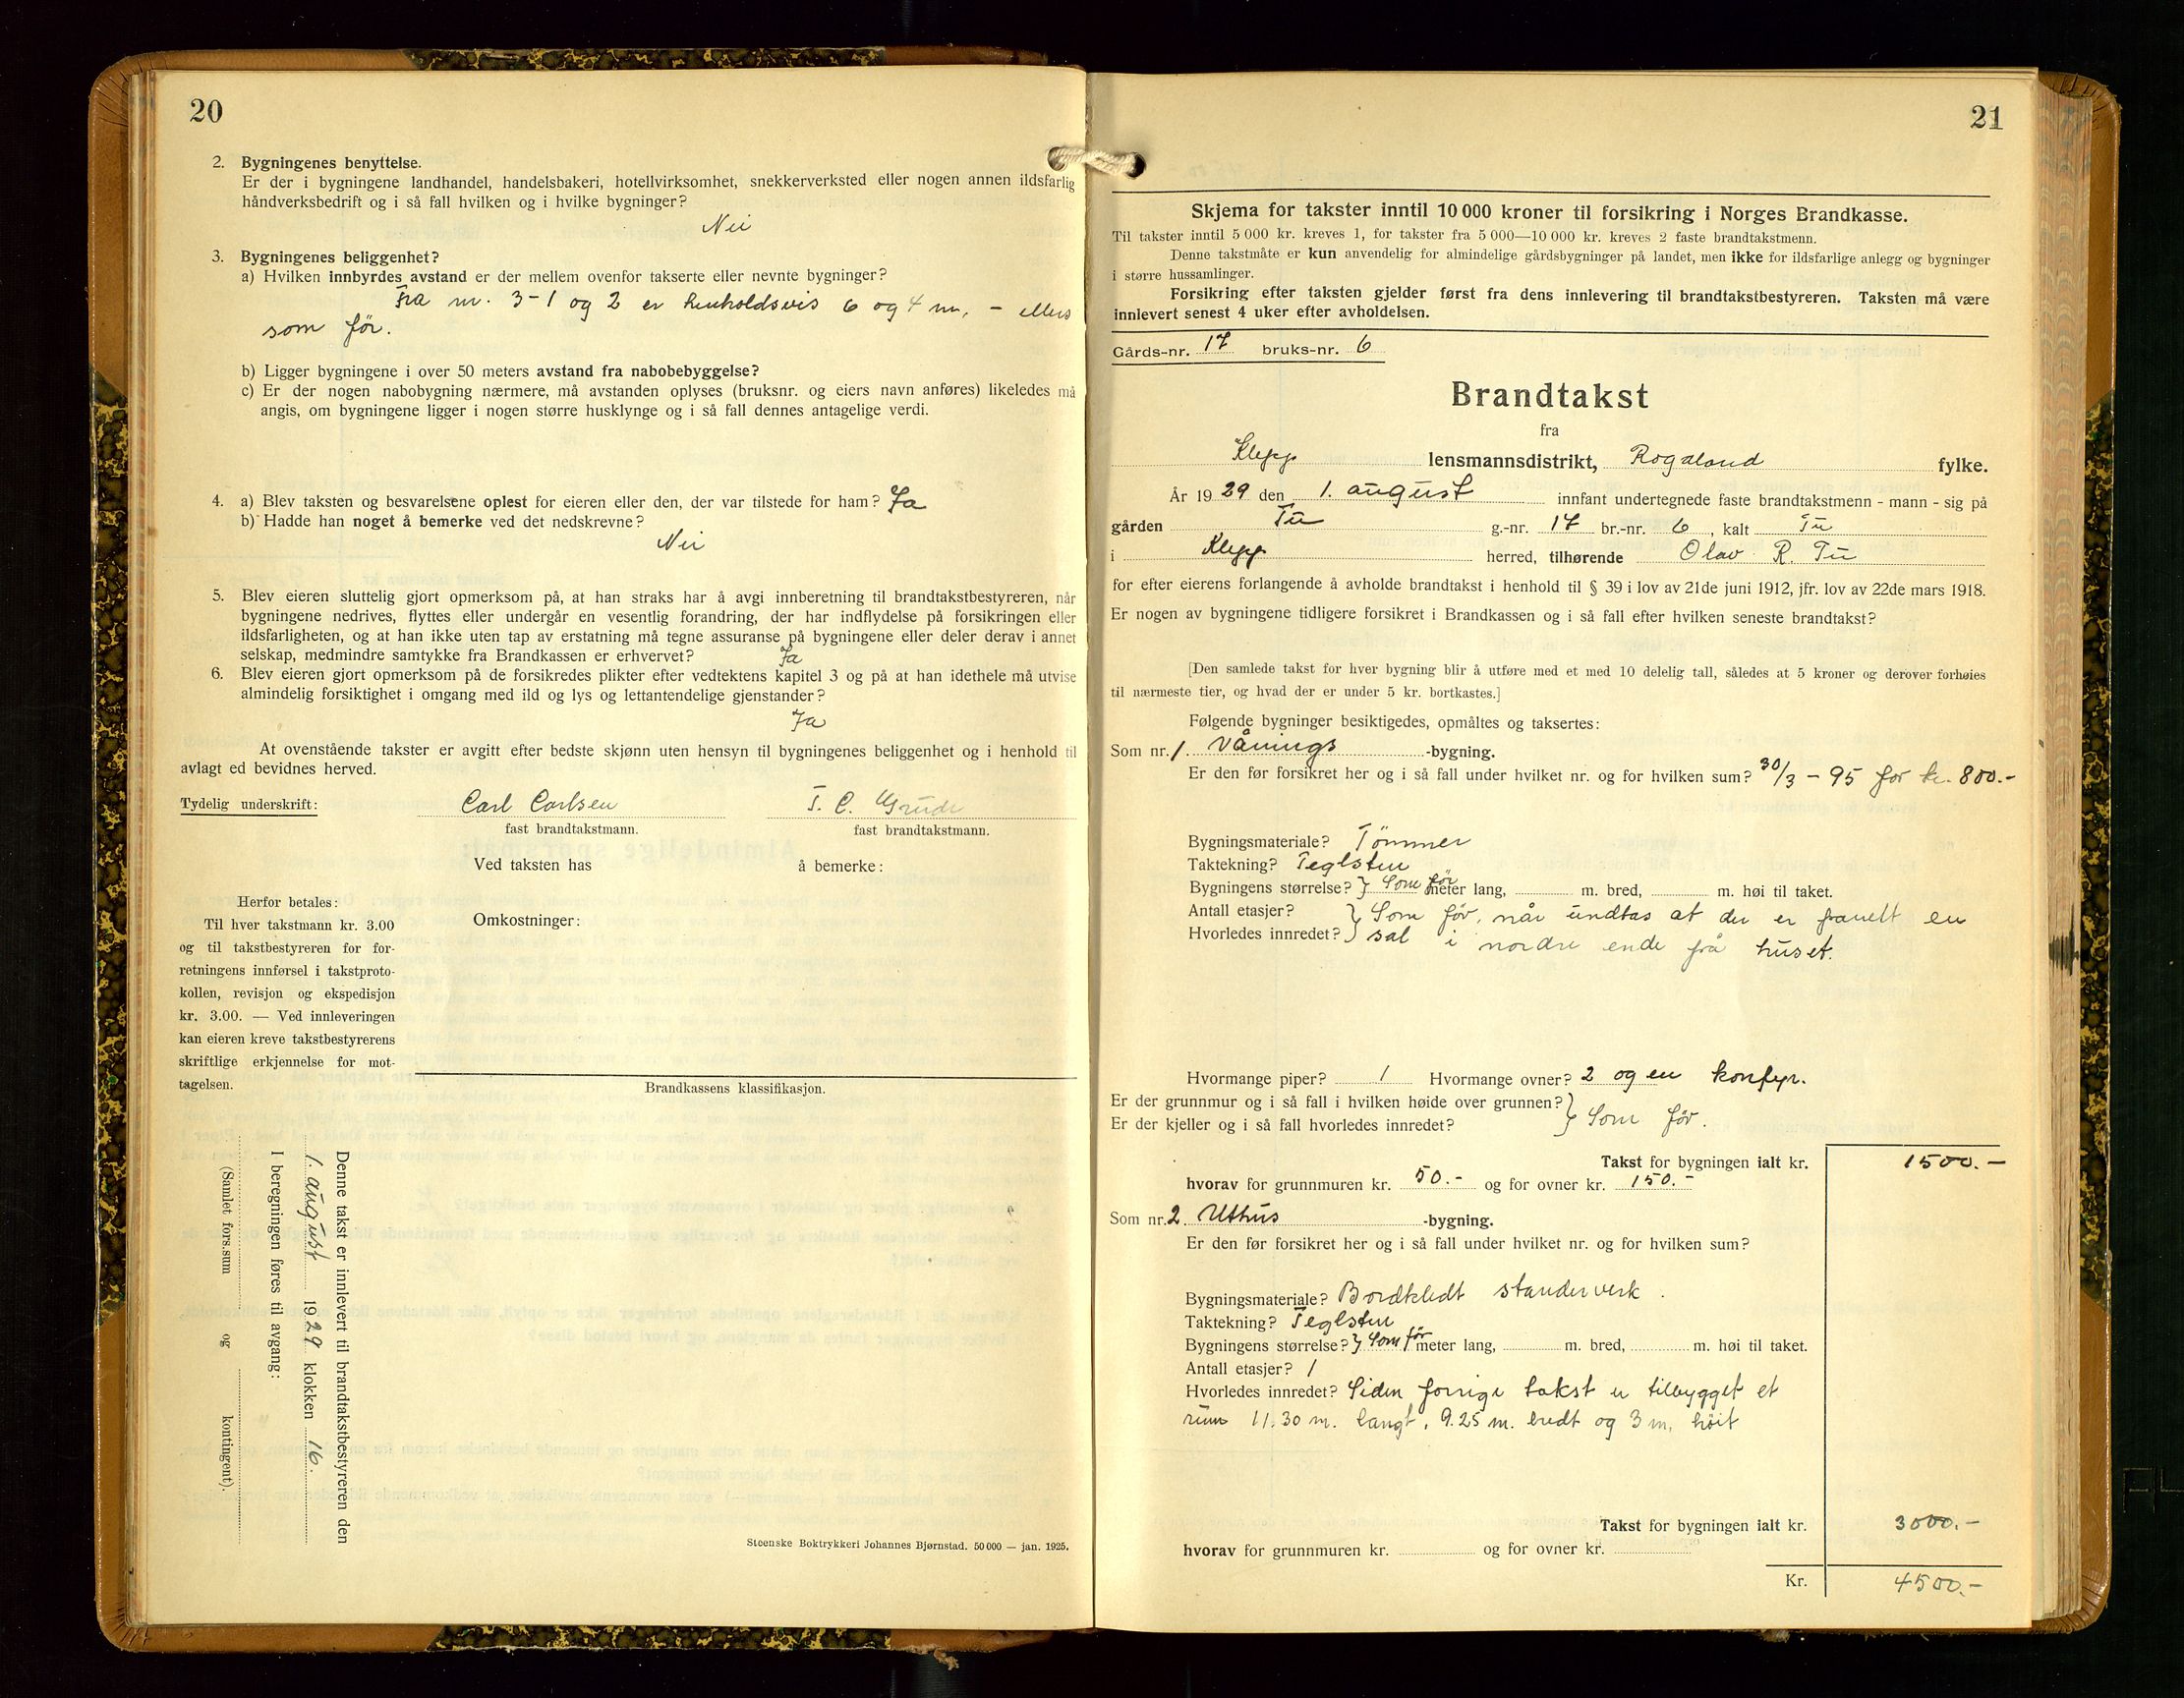 20
2. Bygningenes benyttelse.
Er der i bygningene landhandel, handelsbakeri, hotellvirksomhet, snekkerverksted eller nogen annen ildsfarlig
håndverksbedrift og i så fall hvilken og i hvilke bygninger?
Nei
3. Bygningenes beliggenhet?
a) Hvilken innbyrdes avstand er der mellem ovenfor takserte eller nevnte bygninger?
Fra nr. 3-1 og 2 er henholdsvis 6 og 4 m. - ellers
som før.
b) Ligger bygningene i over 50 meters avstand fra nabobebyggelse?
c) Er der nogen nabobygning nærmere, må avstanden oplyses (bruksnr. og eiers navn anføres) likeledes må
angis, om bygningene ligger i nogen større husklynge og i så fall dennes antagelige verdi.
4. a) Blev taksten og besvarelsene oplest for eieren eller den, der var tilstede for ham? Ja
b) Hadde han noget å bemerke ved det nedskrevne?
Nei
5. Blev eieren sluttelig gjort opmerksom på, at han straks har å avgi innberetning til brandtakstbestyreren, når
bygningene nedrives, flyttes eller undergår en vesentlig forandring, der har indflydelse på forsikringen eller
ildsfarligheten, og at han ikke uten tap av erstatning må tegne assuranse på bygningene eller deler derav i annet
selskap, medmindre samtykke fra Brandkassen er erhvervet? Ja
6. Blev eieren gjort opmerksom på de forsikredes plikter efter vedtektens kapitel 3 og på at han idethele må utvise
almindelig forsiktighet i omgang med ild og lys og lettantendelige gjenstander?
Ja
At ovenstående takster er avgitt efter bedste skjønn uten hensyn til bygningenes beliggenhet og i henhold til
avlagt ed bevidnes herved.
Tydelig underskrift: Carl Carlsen T. C. Grude
fast brandtakstmann. fast brandtakstmann.
Ved taksten has å bemerke:
Omkostninger:
Herfor betales:
Til hver takstmann kr. 3.00
og til takstbestyreren for for-
retningens innførsel i takstproto-
kollen, revisjon og ekspedisjon
kr. 3.00. — Ved innleveringen
kan eieren kreve takstbestyrerens
skriftlige erkjennelse for mot-
tagelsen.
Brandkassens klassifikasjon.
Denne takst er innlevert til brandtakstbestyreren den
1. august 1929 klokken 16.
I beregningen føres til avgang:
(Samlet fors.sum og kontingent).
Steenske Boktrykkeri Johannes Bjørnstad. 50 000 — jan. 1925.
21
Skjema for takster inntil 10 000 kroner til forsikring i Norges Brandkasse.
Til takster inntil 5 000 kr. kreves 1, for takster fra 5 000—10 000 kr. kreves 2 faste brandtakstmenn.
Denne takstmåte er kun anvendelig for almindelige gårdsbygninger på landet, men ikke for ildsfarlige anlegg og bygninger
i større hussamlinger.
Forsikring efter taksten gjelder først fra dens innlevering til brandtakstbestyreren. Taksten må være
innlevert senest 4 uker efter avholdelsen.
Gårds-nr. 17 bruks-nr. 6
Brandtakst
fra
Klepp lensmannsdistrikt, Rogaland fylke.
År 1929 den 1. august innfant undertegnede faste brandtakstmenn - mann - sig på
gården Tu g.-nr. 17 br.-nr. 6, kalt Tu
i Klepp herred, tilhørende Olav R. Tu
for efter eierens forlangende å avholde brandtakst i henhold til § 39 i lov av 21de juni 1912, jfr. lov av 22de mars 1918.
Er nogen av bygningene tidligere forsikret i Brandkassen og i så fall efter hvilken seneste brandtakst?
[Den samlede takst for hver bygning blir å utføre med et med 10 delelig tall, således at 5 kroner og derover forhøies
til nærmeste tier, og hvad der er under 5 kr. bortkastes.]
Følgende bygninger besiktigedes, opmåltes og taksertes:
Som nr. 1. Vånings -bygning.
Er den før forsikret her og i så fall under hvilket nr. og for hvilken sum? 30/3 - 95 for kr. 800.-
Bygningsmateriale? Tømmer
Taktekning? Teglsten
Bygningens størrelse? } Som før meter lang, m. bred, m. høi til taket.
Antall etasjer? } Som før, når undtas at der er panelt en
Hvorledes innredet? } sal i nordre ende på huset.
Hvormange piper? 1 Hvormange ovner? 2 og en komfyr.
Er der grunnmur og i så fall i hvilken høide over grunnen? }
Er der kjeller og i så fall hvorledes innredet? } Som før.
Takst for bygningen ialt kr. 1500.-
hvorav for grunnmuren kr. 50.- og for ovner kr. 150.-
Som nr. 2. Uthus -bygning.
Er den før forsikret her og i så fall under hvilket nr. og for hvilken sum?
Bygningsmateriale? Bordkledt standerverk.
Taktekning? Teglsten
Bygningens størrelse? } Som før meter lang, m. bred, m. høi til taket.
Antall etasjer? 1
Hvorledes innredet? Siden forrige takst er tilbygget et
rum 11.30 m. langt, 9.25 m. bredt og 3 m. høit
Takst for bygningen ialt kr. 3000.-
hvorav for grunnmuren kr. og for ovner kr.
Kr. 4500.-